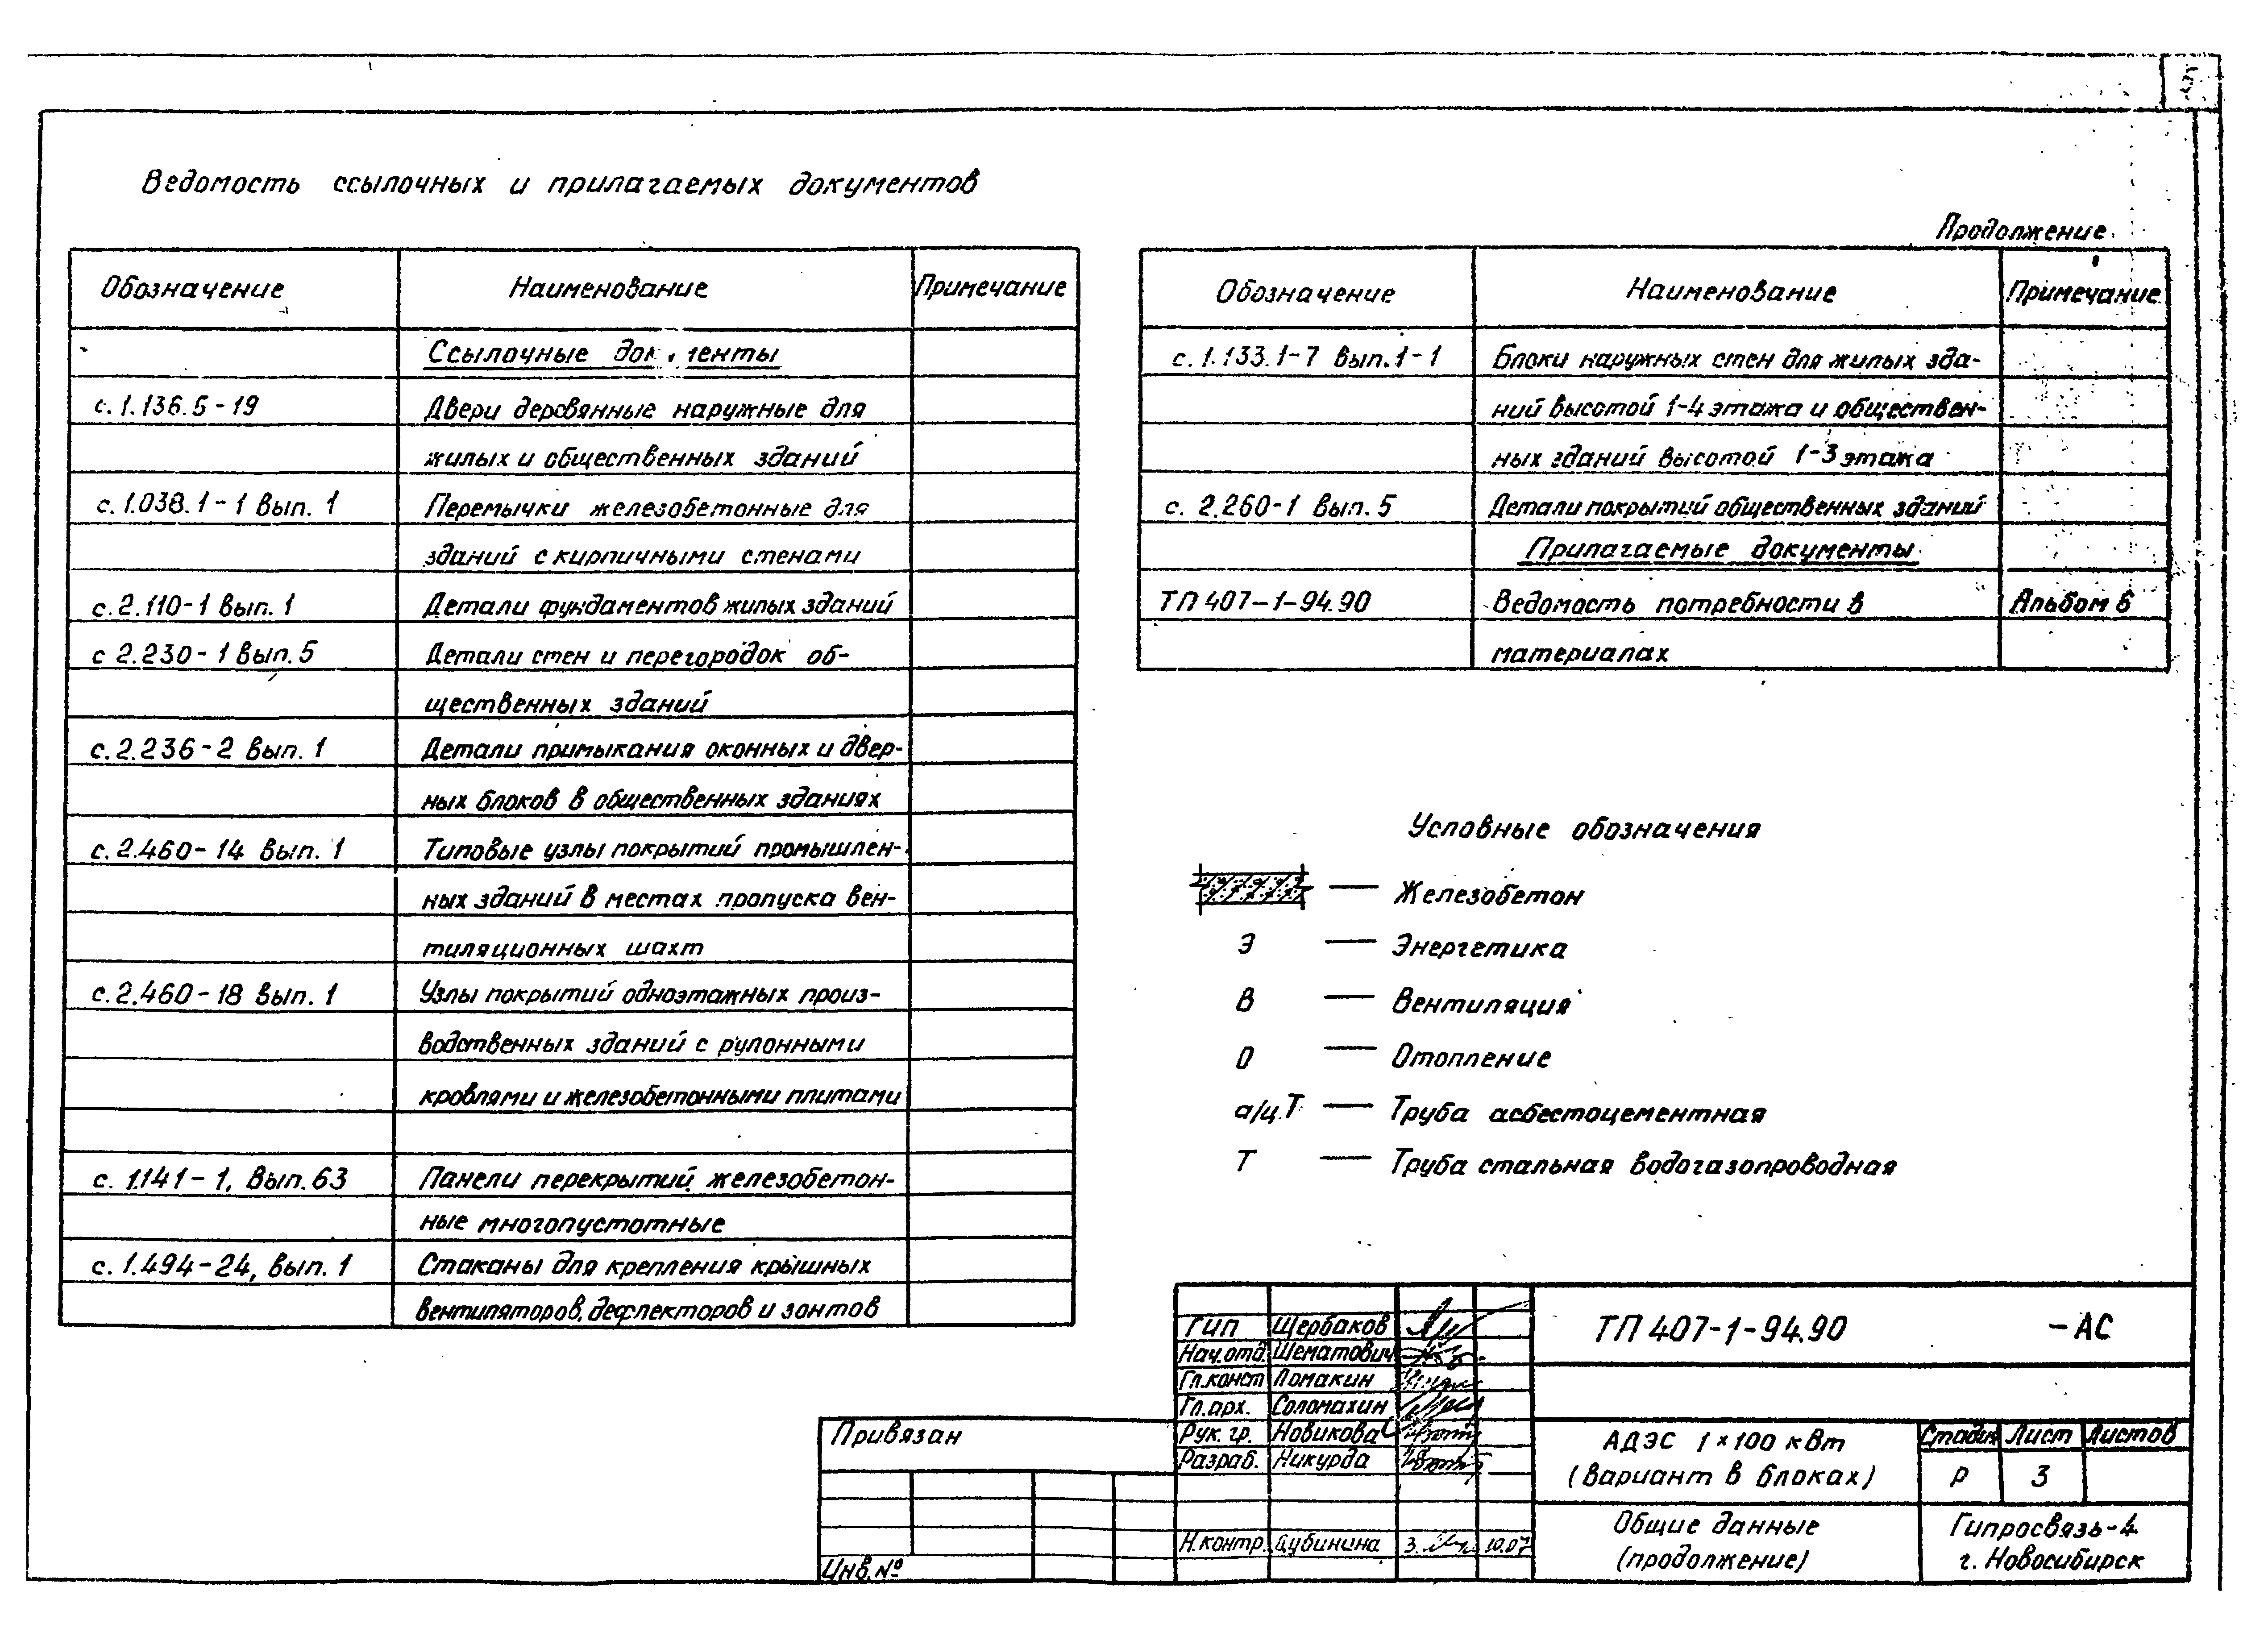 Ведомость ссылочных и прилагаемых документов
Обозначение Наименование Примечание
Ссылочные
с. 1.136.5-19 Двери деревянные наружные для
жилых и общественных зданий
с. 1.038.1-1 Вып. 1 Перемычки железобетонные для
зданий с кирпичными стенами
с. 2.110-1 Вып. 1 Детали фундаментов жилых зданий
с 2.230-1 Вып. 5 Детали стен и перегородок об-
щественных зданий
с. 2.236-2 Вып. 1 Детали примыкания оконных и двер-
ных блоков в общественных зданиях
с. 2.460-14 Вып. 1 Типовые узлы покрытий промышлен-
ных зданий в местах пропуска вен-
тиляционных шахт
с. 2.460-18 Вып. 1 Узлы покрытий одноэтажных произ-
водственных зданий с рулонными
кровлями и железобетонными плитами
с. 1.141-1, Вып. 63 Панели перекрытий железобетон-
ные многопустотные
с. 1.494-24, Вып. 1 Стаканы для крепления крышных
вентиляторов, дефлекторов и зонтов
Продолжение
Обозначение Наименование Примечание
с. 1.133.1-7 Вып. 1-1 Блоки наружных стен для жилых зда-
ний высотой 1-4 этажа и обществен-
ных зданий высотой 1-3 этажа
с. 2.260-1 Вып. 5 Детали покрытий общественных зданий
Прилагаемые документы
ТП 407-1-94.90 Ведомость потребности в Альбом 6
материалах
Условные обозначения
— Железобетон
Э — Энергетика
В — Вентиляция
О — Отопление
а/ц.Т — Труба асбестоцементная
Т — Труба стальная водогазопроводная
ГИП Щербаков
Нач.отд. Шематович
Гл.конст Ломакин
Гл.арх. Соломахин
Рук. гр. Новикова
Разраб. Никурда
Н.контр. 10.07
ТП 407-1-94.90 -АС
АДЭС 1×100 кВт
(вариант в блоках)
Стадия Лист Листов
Р 3
Общие данные
(продолжение)
Гипросвязь-4
г. Новосибирск
Привязан
Инв.№